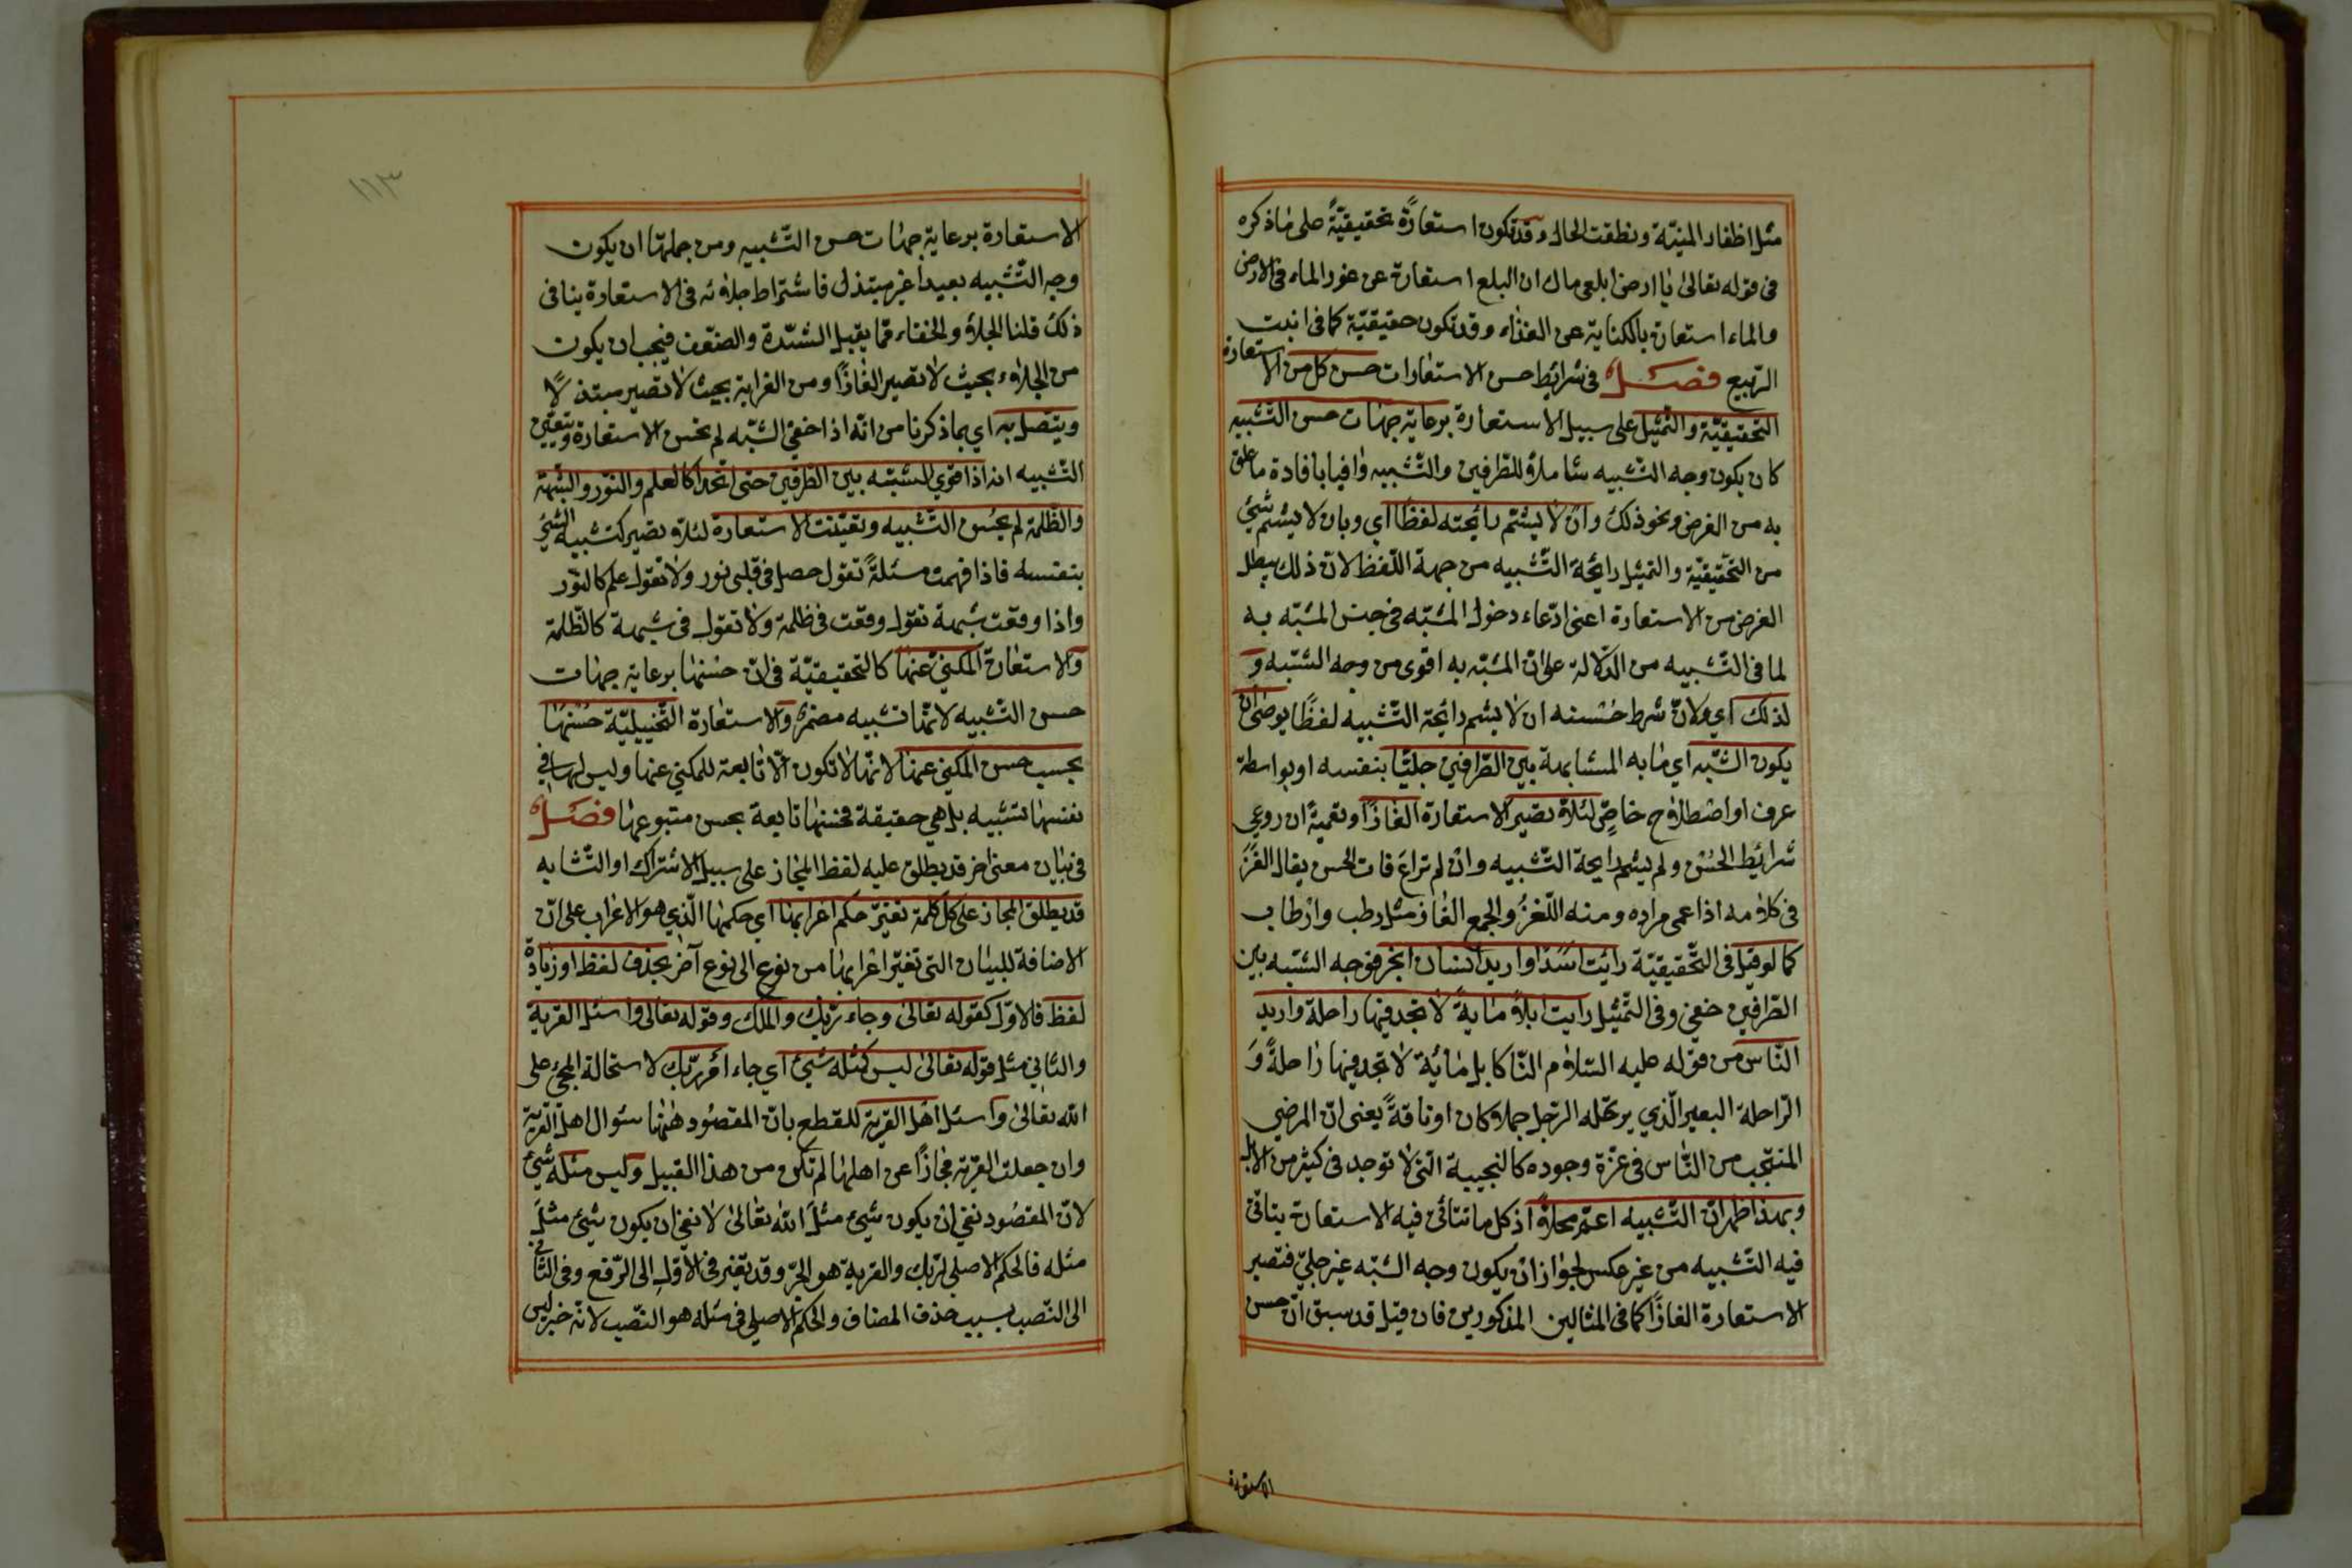 مثل اظفار المنيّة ونطقت الحال وقد تكون استعارةً تحقيقيّةً على ماذكره
فى قوله تعالىٰ يٰا ارض ابلعى ماك ان البلع استعارة عن غور الماء فى الارض
والماء استعارة بالكناية عن الغذاء وقد تكون حقيقيّة كما فى انبت
الرّبيع فصل فى شرائط حسن الاستعارات حسن كل من الاستعارة
التّحقيقيّة والتّمثيل على سبيل الاستعارة برعاية جهات حسن التّشبيه
كان يكون وجه التّشبيه شاملاً للطرفين والتّشبيه وافيا بافادة ما علق
به من الغرض ونحو ذلك وان لا يشمّ رايحته لفظا اي وبان لا يشم شئ
من التّحقيقيّة والتمثيل رايحة التّشبيه من جهة اللّفظ لانّ ذلك يبطل
الغرض من الاستعارة اعنى ادّعاء دخول المشبّه فى جنس المشبّه به
لما فى التّشبيه من الدّلالة على انّ المشبّه به اقوى من وجه الشّبه و
لذلك اي ولانّ شرط حُسنه ان لا يشم رايحة التّشبيه لفظًا يوصىٰ ان
يكون الشّبه اي مٰا به المشابهة بين الطّرافين جليّا بنفسه او بواسطة
عرف او اصْطلاٰح خاصّ لئلاّ تصير الاستعارة الغازًا وتعميةً ان روعي
شرائِط الحُسْن ولم يشم رايحة التّشبيه وانْ لم تراعَ فات الحسن يقال الغَزَ
فى كلاٰمه اذا عمى مراده ومنه اللّغزُ والجمع الغٰاز مثل رطب وارْطاب
كما لو قيل فى التّحقيقيّة رايْت اسَدًا واريد انسٰان ابخر فوجه الشّبه بين
الطّرافين خفيّ وفى التّمثيل رايت ابلاً مٰايةً لاٰ تجد فيها راحلة واريد
النّاس من قوله عليه السّلاٰم النّٰا كابل مٰائة لاٰ تجد فيها رٰاحلةً وَ
الرّاحلة البعير الّذي يرتحله الرّجل جملا كان او ناقةً يعنى انّ المرضي
المنتجب من النّٰاس فى عزّة وجوده كالنجيبة الّتى لاٰ توجد فى كثير من الابل
وبهذا ظهر انّ التّشبيه اعمّ محلاًّ اذ كل ما تتاتّى فيه الاستعارة يتاتّى
فيه التّشبيه من غير عكس لجوٰاز انْ يكون وجه الشّبه غير جليّ فتصير
الاستعارة الغازًا كما فى المثالين المذكورين فان قيل قد سبق انّ حسن
الاستعارة
١١٣
الاستعارة برعاية جهٰات حسن التّشبيه ومن جملتها ان يكون
وجه التّشبيه بعيدا غير مبتذل فاشتراط جلاٰئه فى الاستعارة ينافى
ذلك قلنا الجلاٰ والخفاء ممّا يقبل الشّدّة والضّعف فيجب ان يكون
من الجلاٰء بحيث لاٰ تصير الغٰازًا ومن الغرابة بحيث لاٰ تصير مبتذلاً
ويتّصل به اي بماذكرنا من انّه اذا خفى الشّبه لم تحسن الاستعارة وتتعيّن
التّشبيه انه اذا قوي الشّبه بين الطّرفين حتى اتّحدا كالعلم والنّور والشّبهة
والظّلمة لم يحسُن التّشبيه وتعيّنت الاستعارة لئلاّ تصير كتشبيه الشّئ
بنفسه فاذا فهمت مسئلةً تقول حصل فى قلبى نور ولاٰ تقول علم كالنّور
واذا وقعت شبهة تقول وقعت فى ظلمة ولاٰ تقول فى شبهة كالظّلمة
والاستعٰارة المكنىّ عنهٰا كالتّحقيقيّة فى انّ حُسْنهٰا برعاية جهٰات
حسن التّشبيه لانّهٰا تشبيه مضمرٌ والاستعٰارة التّخييليّة حُسْنهٰا
بحسب حسن المكنىّ عنهٰا لانّهٰا لاٰ تكون الّاٰ تابعة للمكنىّ عنها وليس لها فى
نفسهٰا تشبيه بل هي حقيقة فحسنهٰا تابعة بحسن متبوعهٰا فصل
فى بيٰان معنى اخر قد يطلق عليه لفظ المجٰاز على سبيل الاشتراك او التّشابه
قد يطلق المجاز على كل كلمة تغيّر حكم اعرابهٰا اي حكمهٰا الّذي هو الاعراب على انّ
الاضافة للبيٰان التى تغيّر اعرابهٰا من نوع الى نوع آخر بحذف لفظ او زيادة
لفظ فالاوّل كقوله تعالىٰ وجاء ربّك والملك وقوله تعالى واسئل القرية
والثّاني مثل قوله تعالىٰ ليس كمثله شئ اي جاء امْر ربّك لاستحالة المجئ على
الله تعٰالىٰ واسئل اهْل القرية للقطع بانّ المقصُود ههٰنا سؤال اهل القرية
وان جعلت القرية مجٰازًا عن اهلهٰا لم تكن من هذا القبيل وليس مثله شئ
لانّ المقصُود نفي انْ يكون شئ مثلَ الله تعٰالىٰ لاٰ نفي ان يكون شئ مثلَ
مثله فالحكم الاصلي لربّك والقرية هو الجرّ وقد تغيّر فى الاوّل الى الرّفع وفى الثّانى
الى النّصب بسبب حذف المضاف والحكم الاصلي فى مثله هو النّصب لانّه خبر ليس